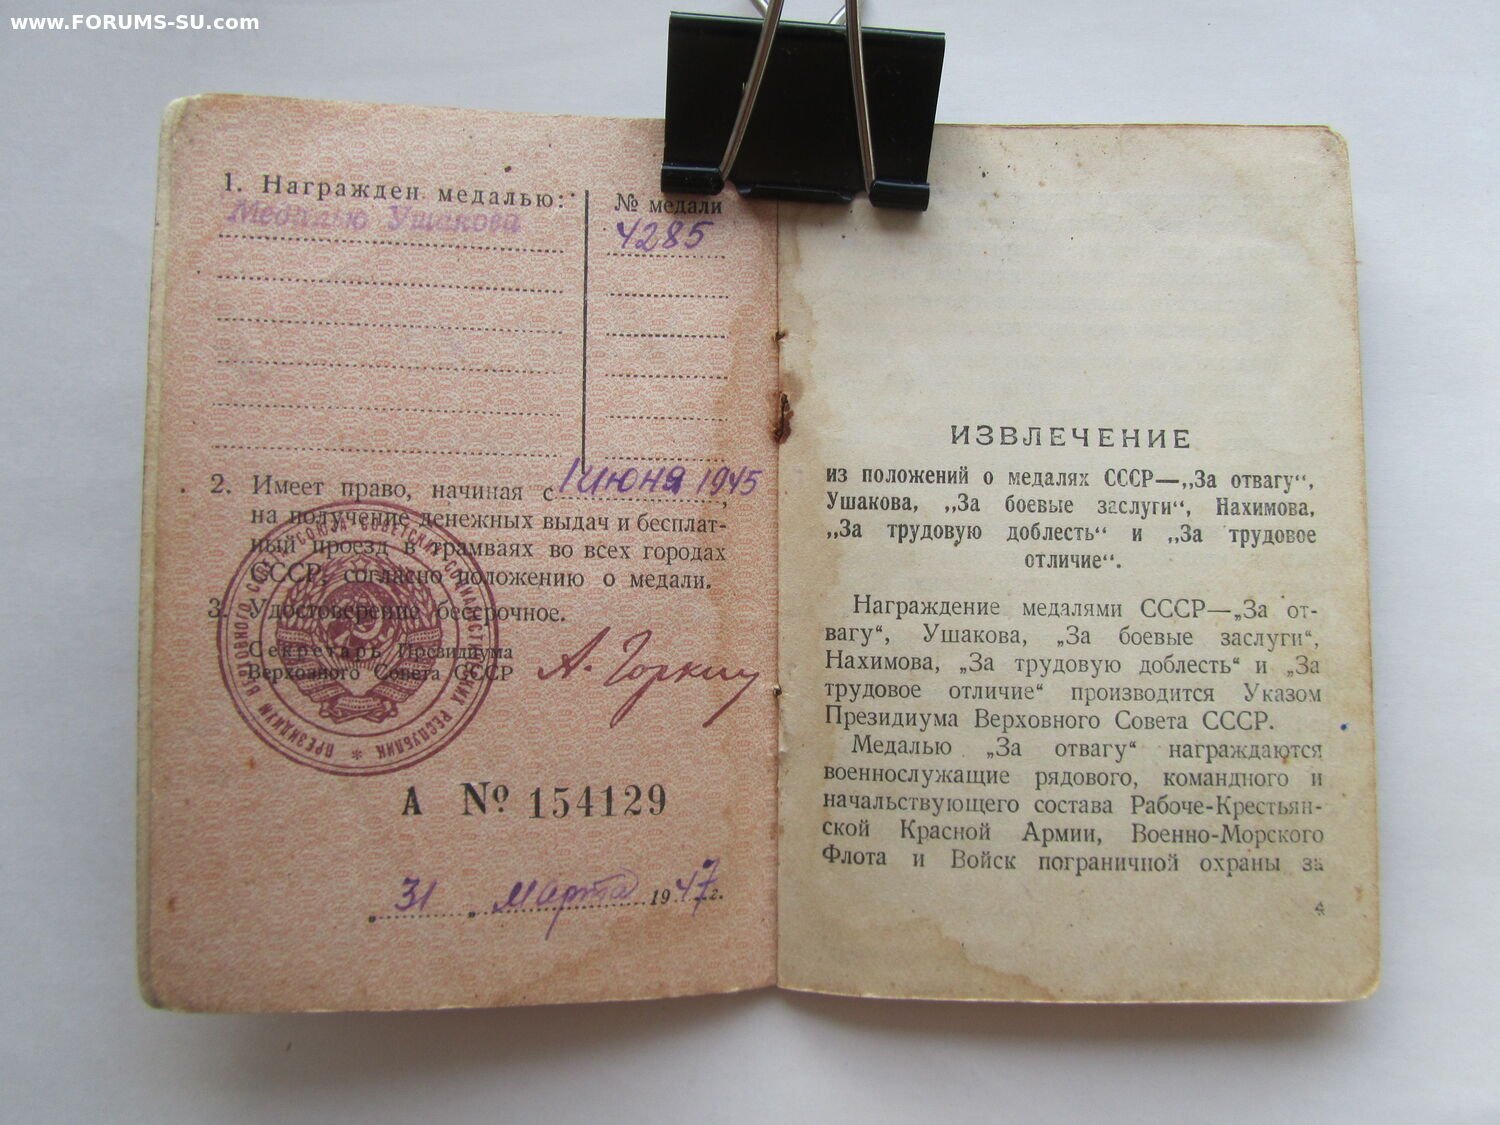 www.FORUMS-SU.com
1. Награжден медалью:
Медалью Ушакова
№ медали
4285
2. Имеет право, начиная с 1 июня 1945,
на получение денежных выдач и бесплат-
ный проезд в трамваях во всех городах
СССР, согласно положению о медали.
3. Удостоверение бессрочное.
Секретарь Президиума
Верховного Совета СССР
А. Горкин
ПРЕЗИДИУМ ВЕРХОВНОГО СОВЕТА СОЮЗА СОВЕТСКИХ СОЦИАЛИСТИЧЕСКИХ РЕСПУБЛИК
А № 154129
31 марта 1947 г.
ИЗВЛЕЧЕНИЕ
из положений о медалях СССР—„За отвагу“,
Ушакова, „За боевые заслуги“, Нахимова,
„За трудовую доблесть“ и „За трудовое
отличие“.
Награждение медалями СССР—„За от-
вагу“, Ушакова, „За боевые заслуги“,
Нахимова, „За трудовую доблесть“ и „За
трудовое отличие“ производится Указом
Президиума Верховного Совета СССР.
Медалью „За отвагу“ награждаются
военнослужащие рядового, командного и
начальствующего состава Рабоче-Крестьян-
ской Красной Армии, Военно-Морского
Флота и Войск пограничной охраны за
4